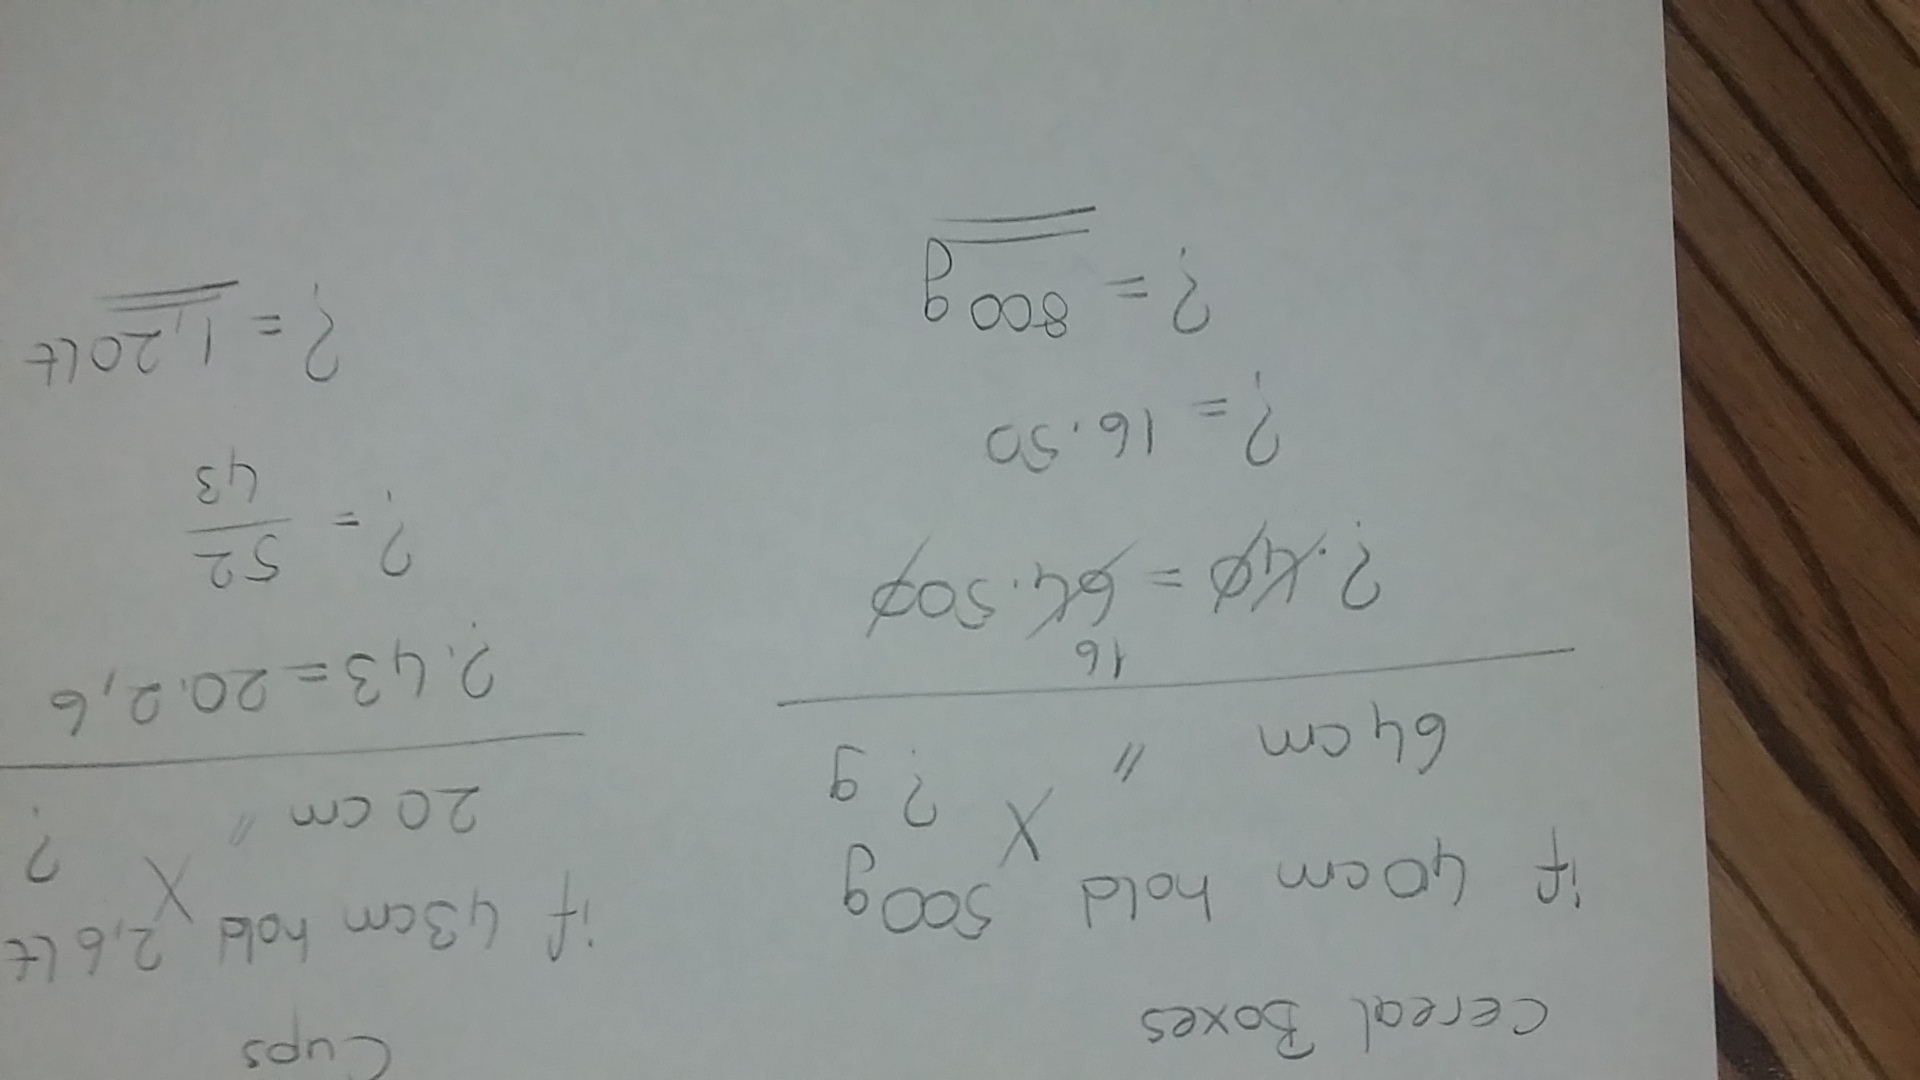 Cereal Boxes
if 40cm hold 500g
X
64cm " ? g
16
?.40 = 64.500
? = 16.50
? = 800 g
Cups
if 43cm hold 2,6 lt
X
20 cm " ?
?.43 = 20.2,6
? = 52
43
? = 1,20lt